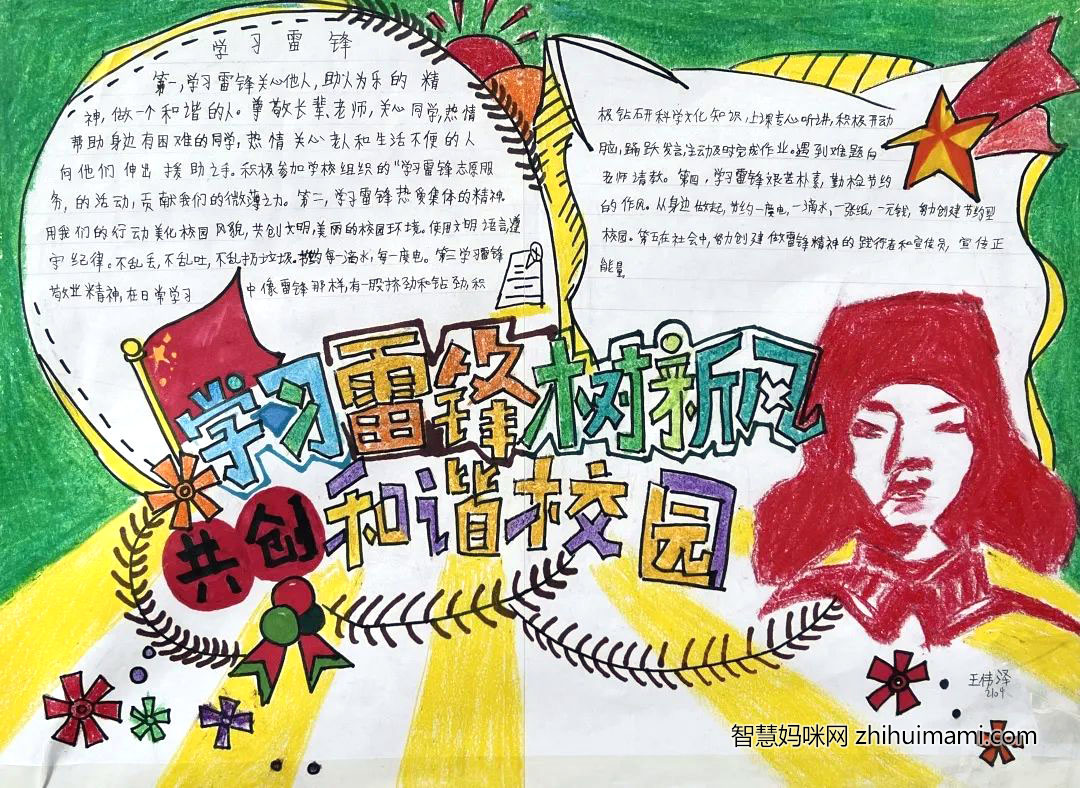 学习雷锋
第一,学习雷锋关心他人,助人为乐的 精
神,做一个和谐的人。尊敬长辈、老师,关心同学,热情
帮助身边有困难的同学,热情关心老人和生活不便的人
向他们伸出援助之手。积极参加学校组织的“学习雷锋志愿服
务,的活动,贡献我们的微薄之力。第二,学习雷锋热爱集体的精神.
用我们的行动美化校园风貌,共创文明,美丽的校园环境。使用文明语言遵
守纪律。不乱丢,不乱吐,不乱扔垃圾.节约每一滴水,每一度电。第三学习雷锋
敬业精神,在日常学习 中像雷锋那样,有一股挤劲和钻劲,积
极钻研科学文化知识,上课专心听讲,积极开动
脑,踊跃发言,主动及时完成作业。遇到难题向
老师请教。第四,学习雷锋艰苦朴素,勤俭节约
的作风。从身边做起,节约一度电,一滴水,一张纸,一元钱,努力创建节约型
校园。第五在社会中,努力创建做雷锋精神的践行者和宣传员,宣传正
能量.
学习雷锋树新风
共创和谐校园
王伟泽
2104
智慧妈咪网 zhihuimami.com